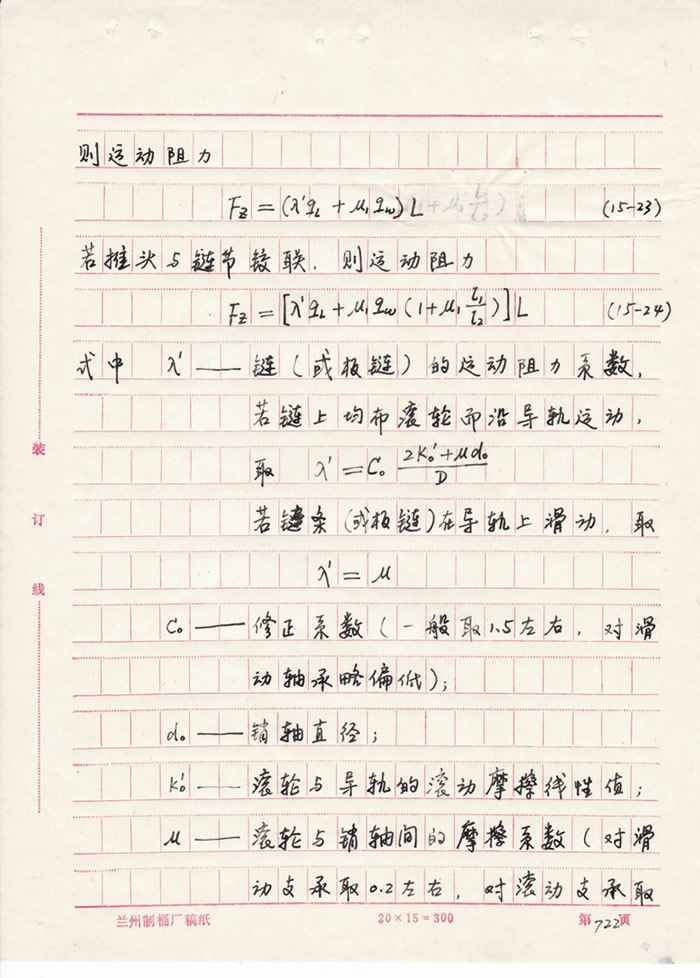 则运动阻力
F_Z = (λ'q_L + μ₁q_w) L (15-23)
若推头与链节铰联，则运动阻力
F_Z = [λ'q_L + μ₁q_w (1 + μ₁ l₁/l₂)] L (15-24)
式中 λ' —— 链（或板链）的运动阻力系数，
若链上均布滚轮而沿导轨运动，
取 λ' = C₀ (2K₀' + μd₀)/D
若链条（或板链）在导轨上滑动，取
λ' = μ
C₀ —— 修正系数（一般取1.5左右，对滑
动轴承略偏低）；
d₀ —— 销轴直径；
K₀' —— 滚轮与导轨的滚动摩擦线性值；
μ —— 滚轮与销轴间的摩擦系数（对滑
动支承取0.2左右，对滚动支承取
装
订
线
兰州制桶厂稿纸 20×15=300 第722页